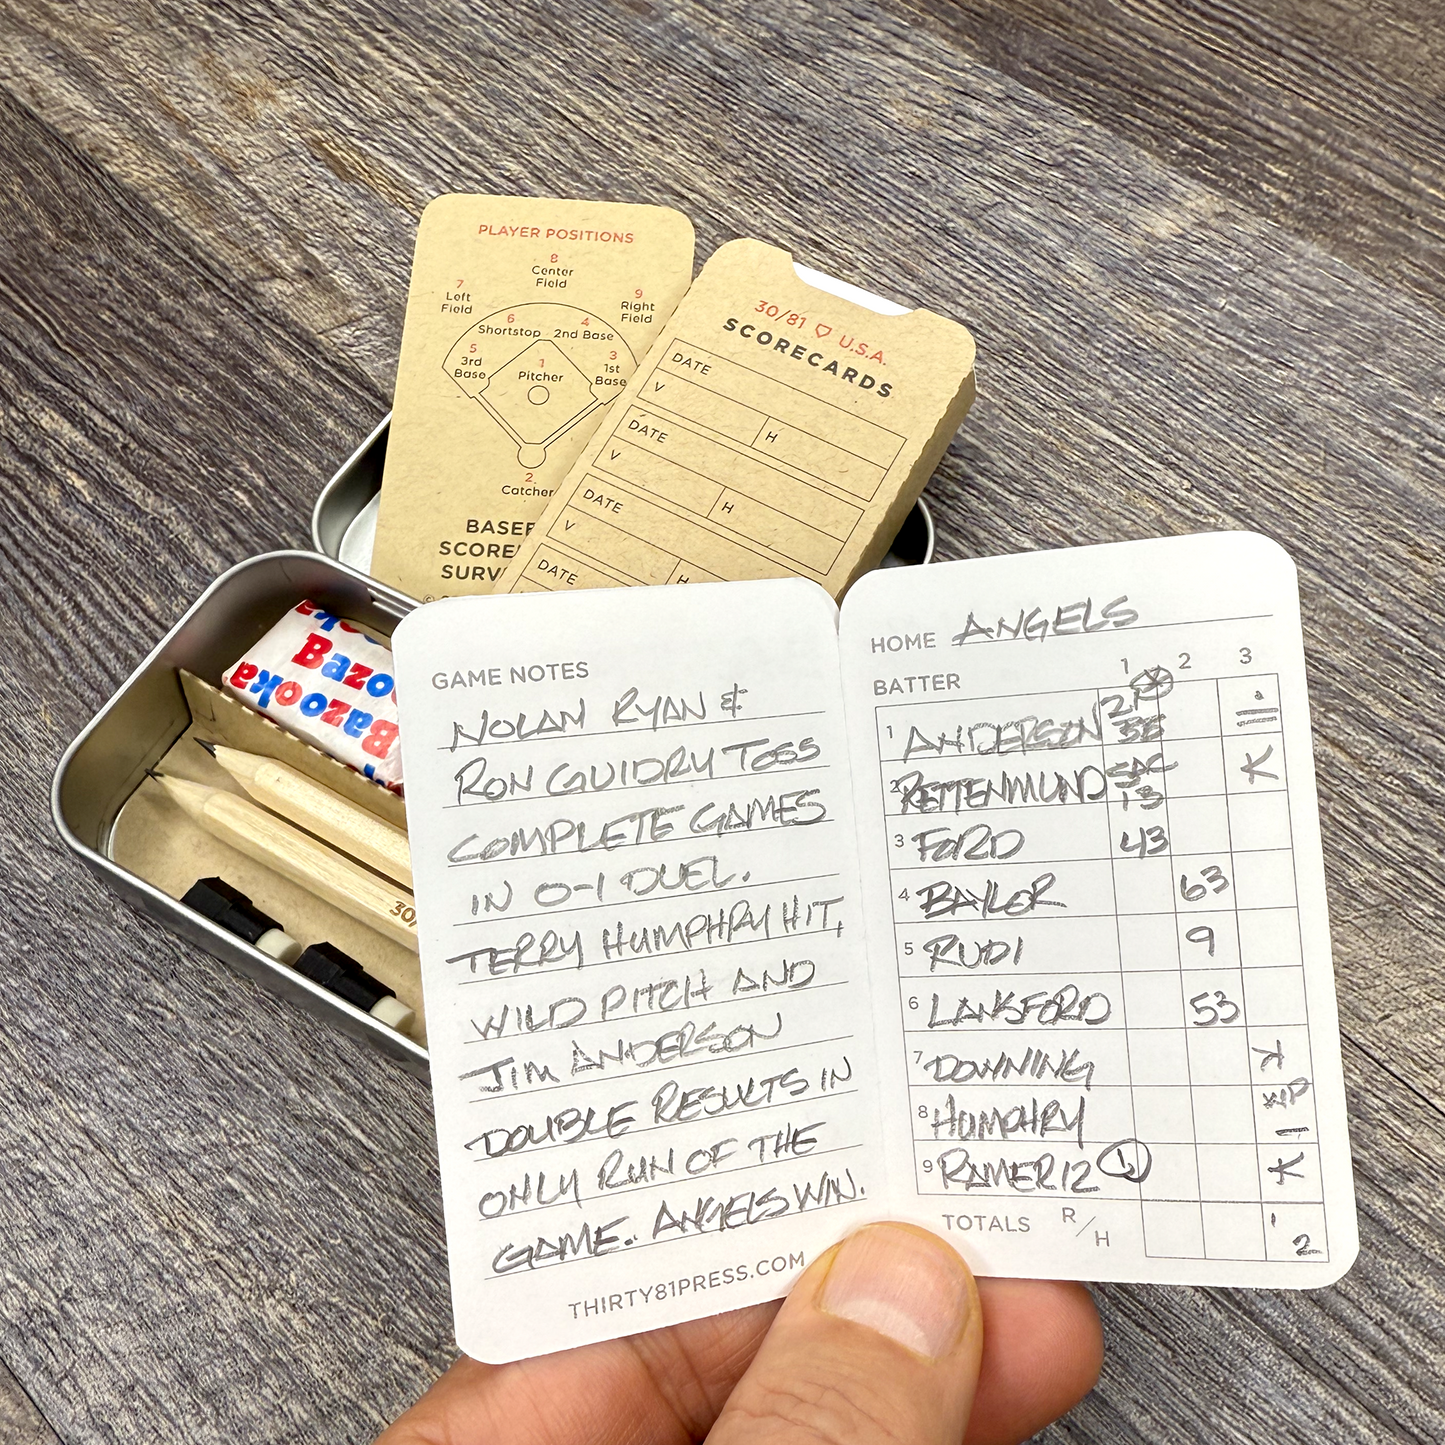 PLAYER POSITIONS
8
Center
Field
7
Left
Field
9
Right
Field
6
Shortstop
4
2nd Base
5
3rd
Base
3
1st
Base
1
Pitcher
2
Catcher
30/81 U.S.A.
SCORECARDS
DATE
V H
DATE
V H
DATE
V H
DATE
Bazooka
Bazooka
GAME NOTES
NOLAN RYAN &
RON GUIDRY TOSS
COMPLETE GAMES
IN 0-1 DUEL.
TERRY HUMPHRY HIT,
WILD PITCH AND
JIM ANDERSON
DOUBLE RESULTS IN
ONLY RUN OF THE
GAME. ANGELS WIN.
THIRTY81PRESS.COM
HOME ANGELS
BATTER 1 2 3
1 ANDERSON
2 RETTENMUND SAC 13 K
3 FORD 43
4 BAYLOR 63
5 RUDI 9
6 LANSFORD 53
7 DOWNING K
8 HUMPHRY WP
9 RAMERIZ 1 K
TOTALS R/H 1 2